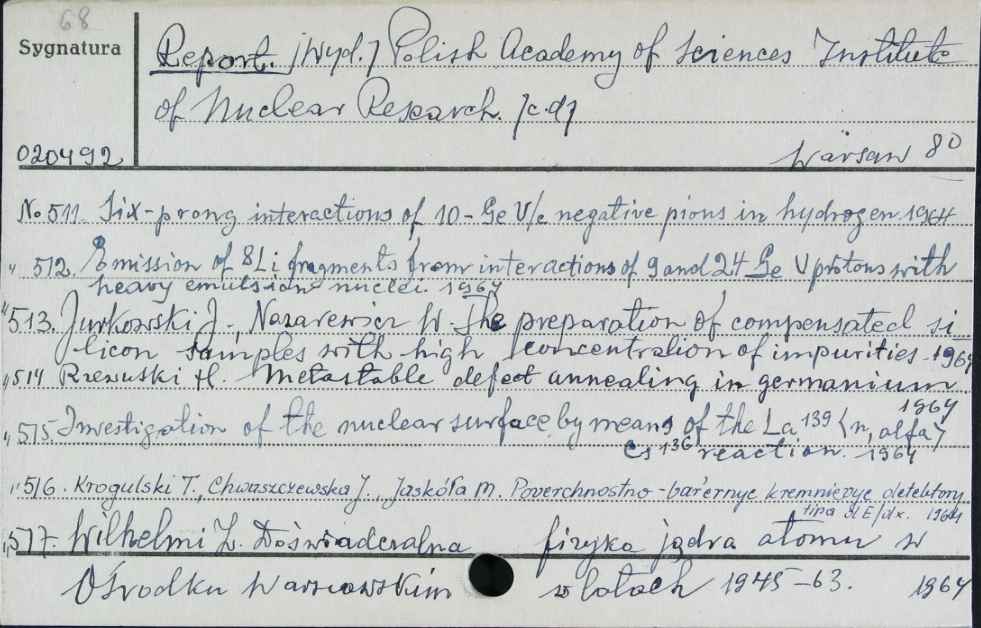 68
Sygnatura
Report. [Wyd.] Polish Academy of Sciences Institute
of Nuclear Research. [c.d]
020492
Warsaw 80
No 511 Six-prong interactions of 10-GeV/c negative pions in hydrogen 1964
" 512. Emission of 8Li fragments from interactions of 9 and 24 GeV protons with
heavy emulsion nuclei. 1964
" 513. Jurkowski J., Nazarewicz W. The preparation of compensated si-
licon samples with high concentration of impurities. 1964
" 514 Rzewuski H. Metastable defect annealing in germanium.
1964
" 515. Investigation of the nuclear surface by means of the La 139 (n, alfa)
Cs 136 reaction. 1964
" 516. Krogulski T., Chwaszczewska J., Jaskóła M. Poverchnostno-bar'ernye kremnievye detektory
tipa dE/dx. 1964
" 517. Wilhelmi Z. Doświadczalna fizyka jądra atomu w
Ośrodku Warszawskim w latach 1945-63. 1964